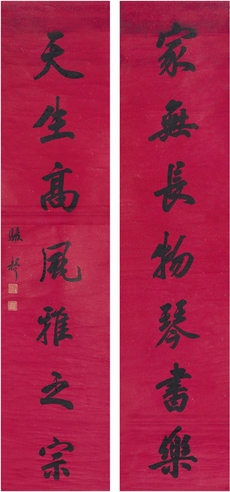 家無長物琴書樂
天生高風雅之宗